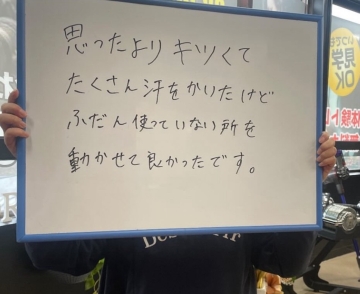 思ったよりキツくて
たくさん汗をかいたけど
ふだん使っていない所を
動かせて良かったです。
いつでも
見学
OK